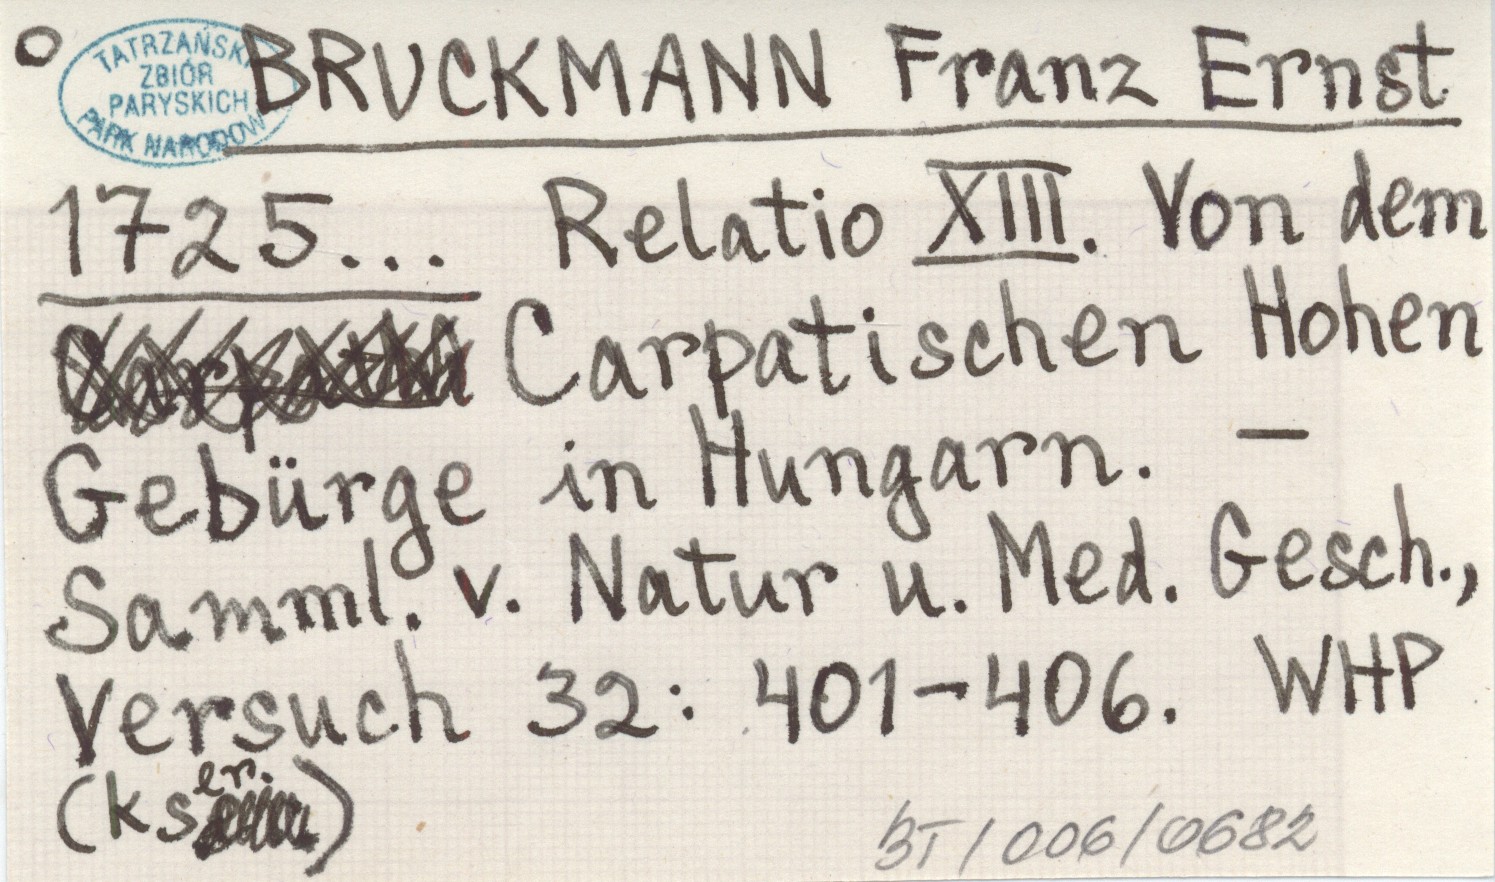 TATRZAŃSKI
ZBIÓR
PARYSKICH
PARK NARODOW
BRUCKMANN Franz Ernst
1725... Relatio XIII. Von dem
Carpatischen Hohen
Gebürge in Hungarn. —
Samml. v. Natur u. Med. Gesch.,
Versuch 32: 401-406. WHP
(kser.)
BT/006/0682